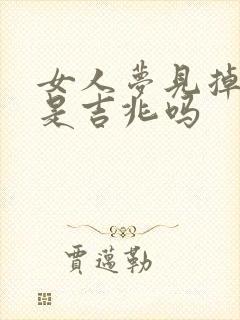 女人夢見掉
是吉兆嗎
賈邁勒